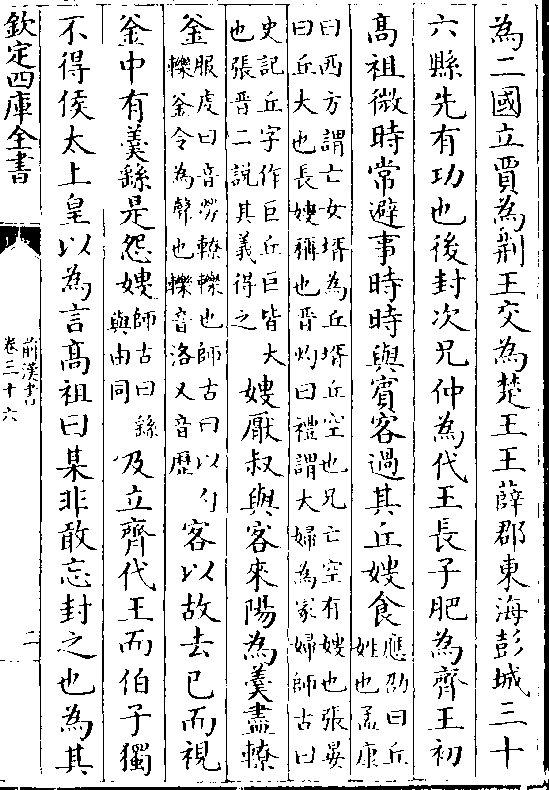 為二國立賈為荆王交為楚王王薛郡東海彭城三十
六縣先有功也後封次兄仲為代王長子肥為齊王初
高祖微時常避事時時與賓客過其丘嫂食應劭曰丘
姓也孟康
曰西方謂亡女壻為丘壻丘空也兄亡空有嫂也張晏
曰丘大也長嫂稱也晉灼曰禮謂大婦為冢婦師古曰
史記丘字作巨丘巨皆大
也張晉二說其義得之
嫂厭叔與客來陽為羮盡轑
釜服虔曰音勞轑轢也師古曰以勺
轢釜令為聲也轢音洛又音歷
客以故去已而視
釜中有羮繇是怨嫂師古曰繇
與由同
及立齊代王而伯子獨
不得侯太上皇以為言高祖曰某非敢忘封之也為其
欽定四庫全書
前漢書
卷三十六
二